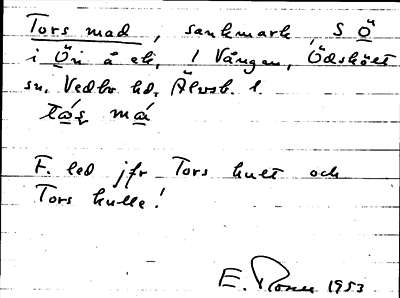 Tors mad, sankmark, S Ö
i Ön å ek. 1 Vången, Ödskölt
sn. Vedbo hd. Älvsb. l.
F. led jfr Tors hult och
Tors kulle!
E. 1953